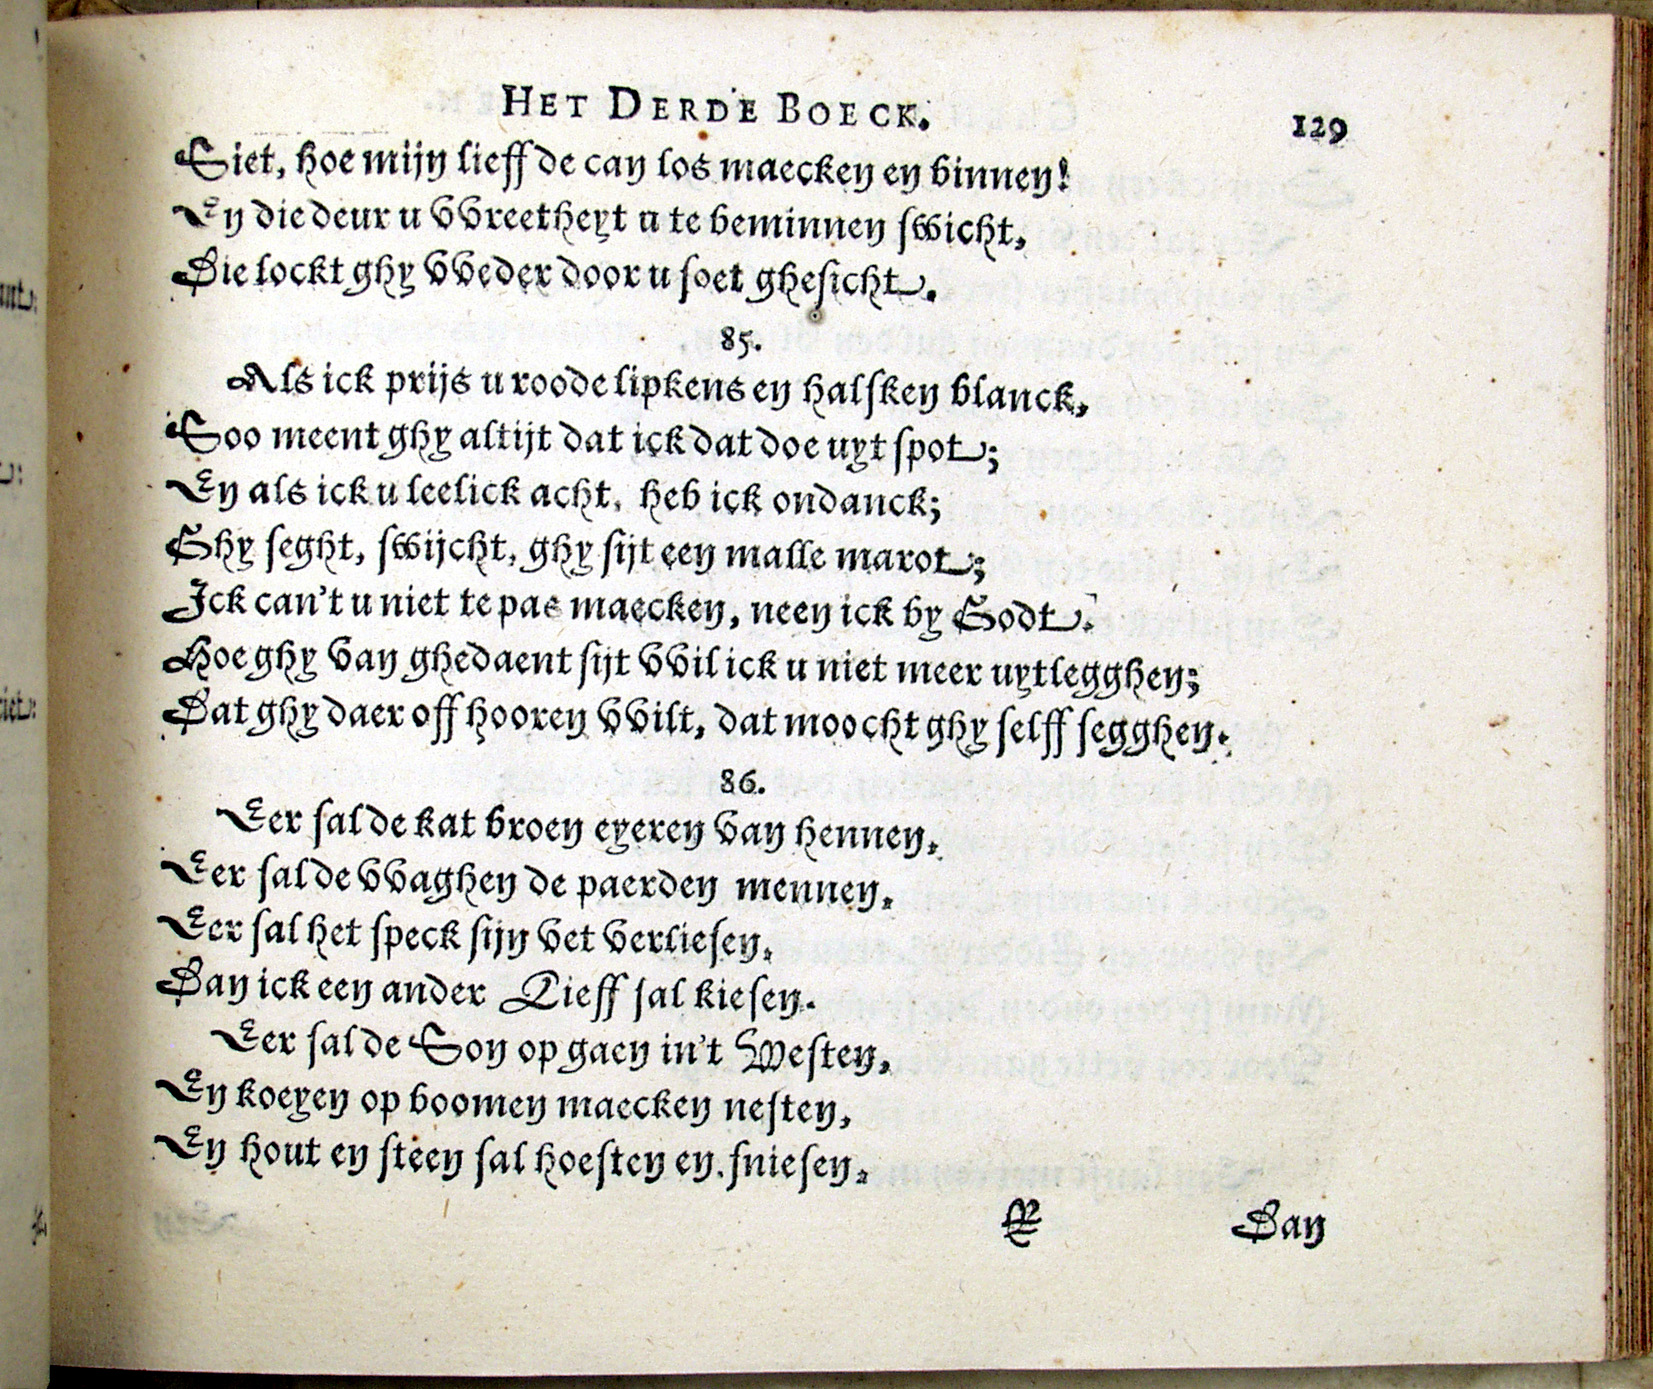 HET DERDE BOECK.
129
Siet, hoe mijn lieff de can los maecken en binnen!
En die deur u vvreetheyt u te beminnen swicht,
Die lockt ghy vveder door u soet ghesicht.
85.
Als ick prijs u roode lipkens en halsken blanck,
Soo meent ghy altijt dat ick dat doe uyt spot;
En als ick u leelick acht, heb ick ondanck;
Ghy seght, swijcht, ghy sijt een malle marot;
Ick can't u niet te pas maecken, neen ick by Godt.
Hoe ghy van ghedaent sijt vvil ick u niet meer uytlegghen;
Dat ghy daer off hooren vvilt, dat moocht ghy selff segghen.
86.
Eer sal de kat broen eyeren van hennen,
Eer sal de vvaghen de paerden mennen,
Eer sal het speck sijn vet verliesen,
Dan ick een ander Lieff sal kiesen.
Eer sal de Son op gaen in't Westen,
En koeyen op boomen maecken nesten,
En hout en steen sal hoesten en sniesen,
R
Dan